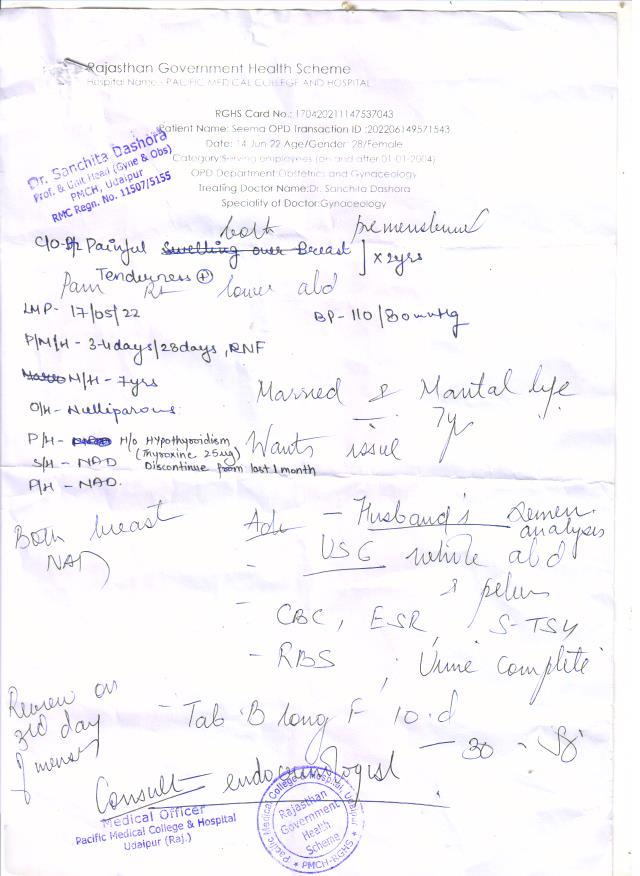 Rajasthan Government Health Scheme
Hospital Name - PACIFIC MEDICAL COLLEGE AND HOSPITAL
RGHS Card No.: 170420211147537043
Patient Name: Seema OPD Transaction ID :202206149571543
Date: 14 Jun 22 Age/Gender: 28/Female
Category:Serving employees (on and after 01-01-2004)
OPD Department:Obstetrics and Gynaecology
Treating Doctor Name:Dr. Sanchita Dashora
Speciality of Doctor:Gynaceology
Dr. Sanchita Dashora
Prof. & Unit Head (Gyne & Obs)
PMCH, Udaipur
RMC Regn. No. 11507/5155
both premenstrual
C/O- B/L Painful Swelling over Breast ] x 2yrs
Tenderness (+)
Pain Rt lower abd
LMP- 17/05/22 BP- 110/80mmHg
P/M/H - 3-4days/28days, RNF
M/H - 7yrs Married & Marital life
7y
O/H- Nulliparous
P/H- H/O Hypothyroidism Wants issue
(Thyroxine 25ug)
S/H - NAD Discontinue from last 1 month
F/H - NAD.
Both breast
NAD
Adv - Husband's Semen analysis
- USG whole abd & pelvis
- CBC, ESR, S-TSH
- RBS ; Urine complete
Review on
3rd day
of menses
- Tab B long F 10.d
- 30
Consult endocrinologist
Medical Officer
Pacific Medical College & Hospital
Udaipur (Raj.)
Pacific Medical College & Hospital, Udaipur
Rajasthan
Government
Health
Scheme
PMCH-RGHS